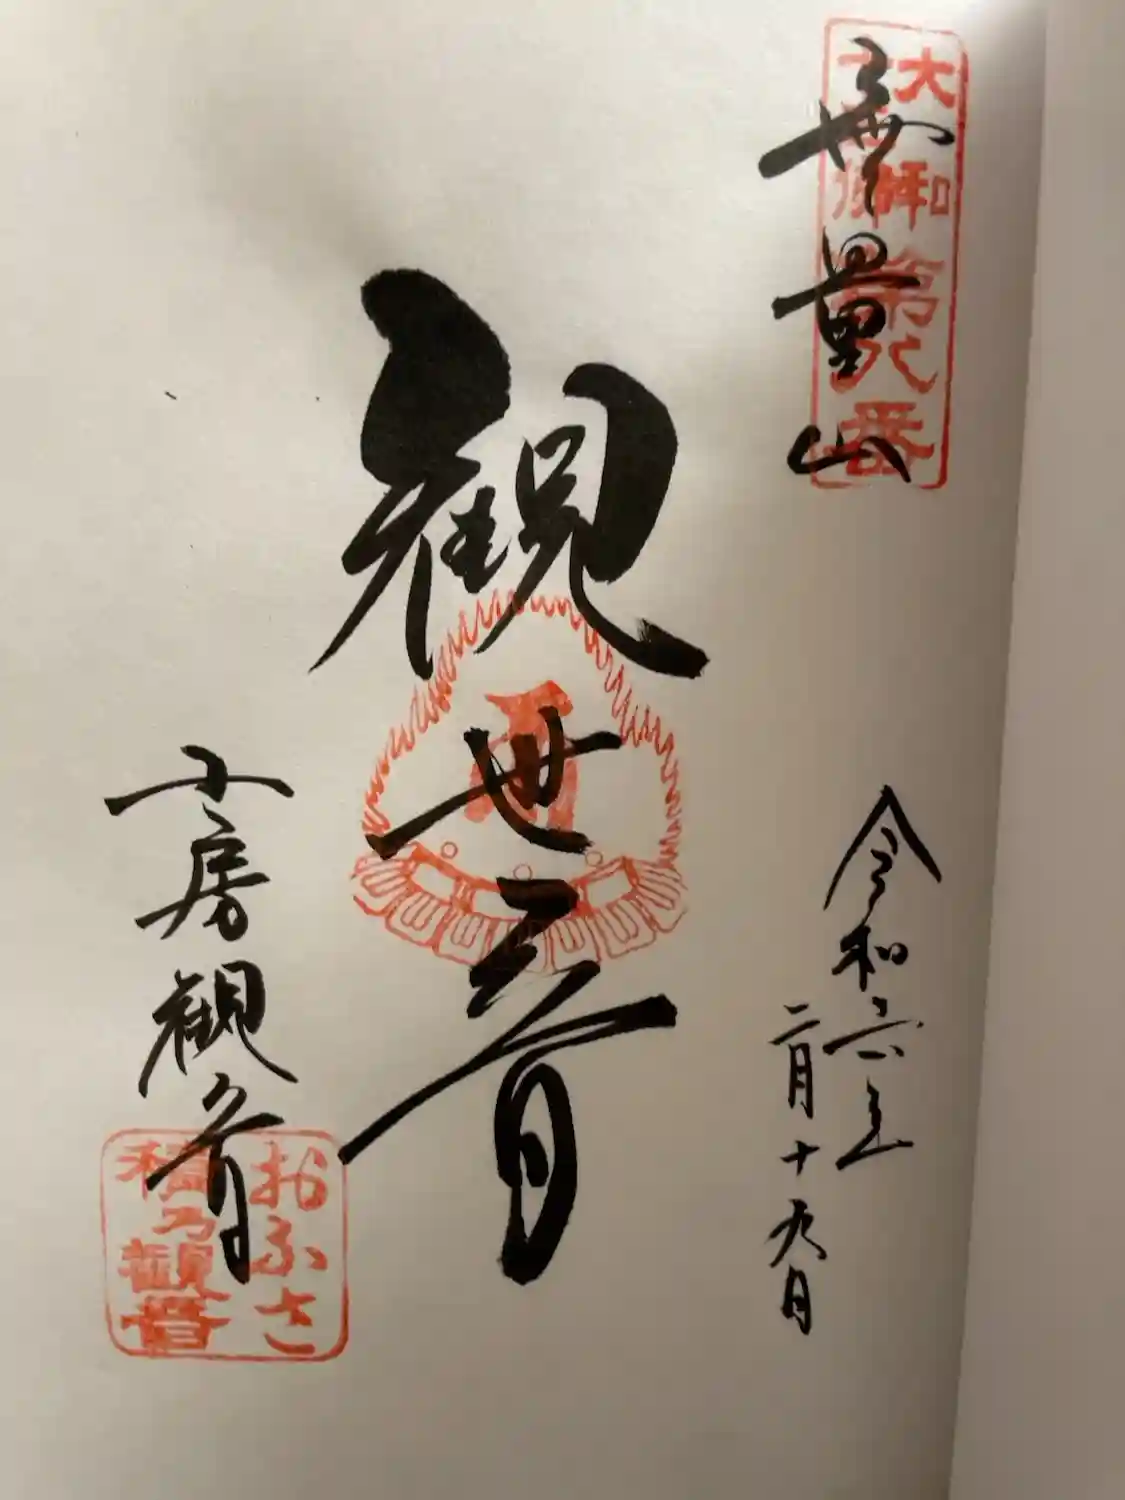 無量山
大和
第八番
令和六年
二月十九日
観世音
小房観音
おふさ
観音